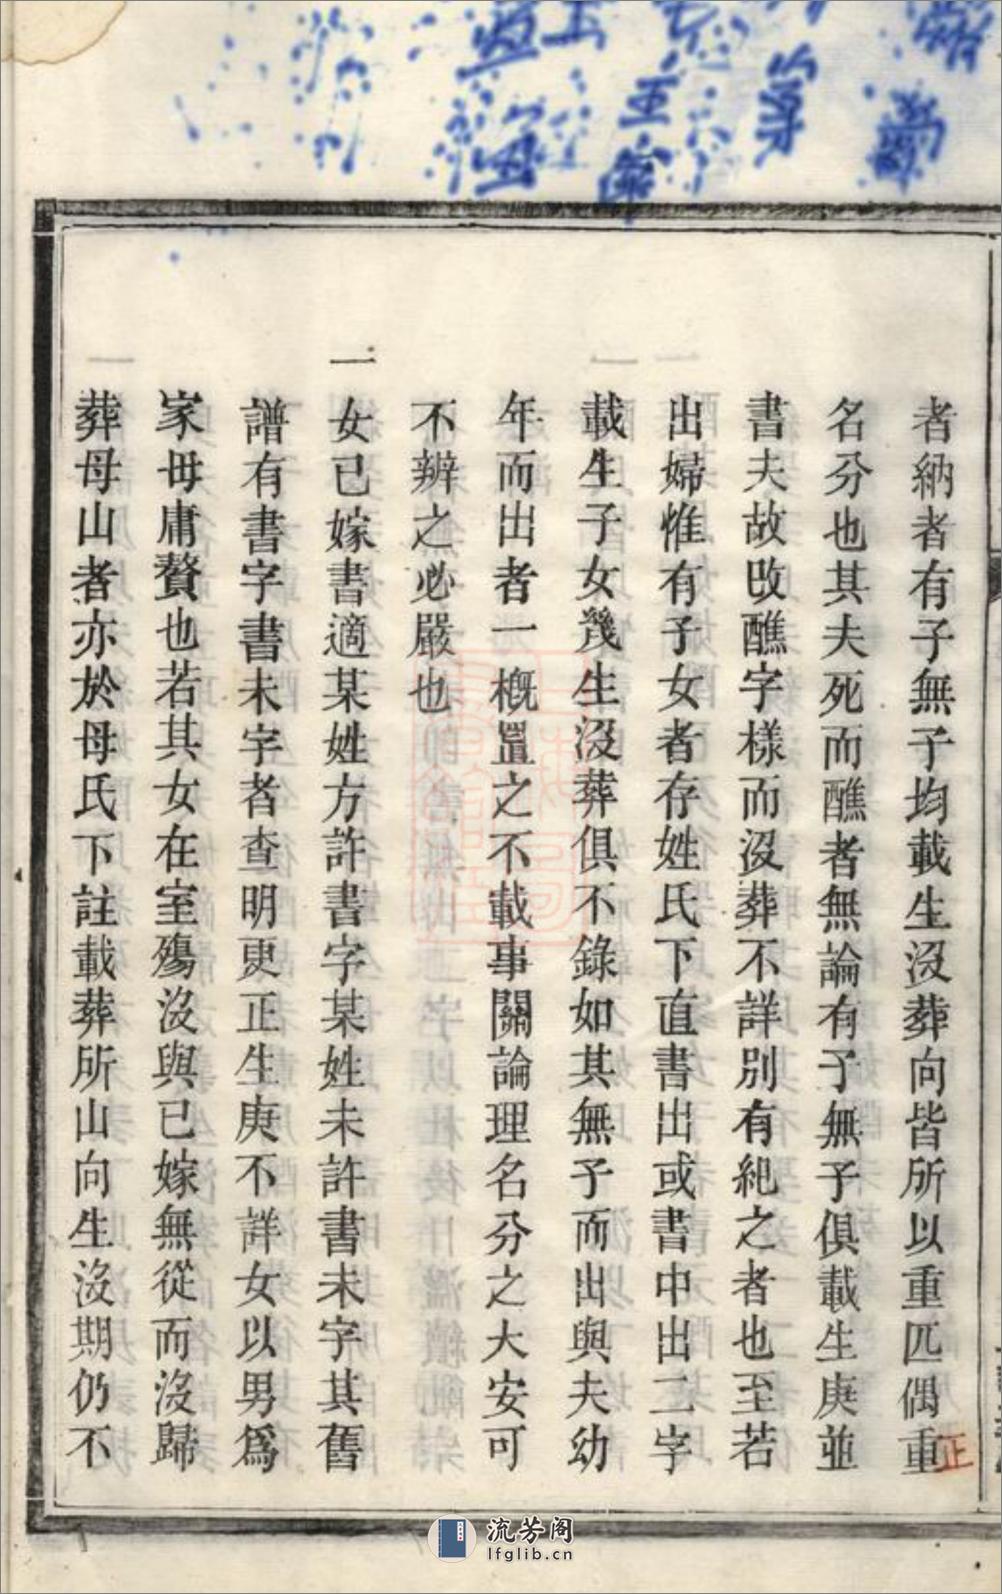 者納者有子無子均載生沒葬向皆所以重匹偶重
名分也其夫死而醮者無論有子無子俱載生庚並
書夫故改醮字樣而沒葬不詳別有絶之者也至若
出婦惟有子女者存姓氏下直書出或書中出二字
載生子女幾生沒葬俱不錄如其無子而出與夫幼
年而出者一概置之不載事關論理名分之大安可
不辨之必嚴也
一女已嫁書適某姓方許書字某姓未許書未字其舊
譜有書字書未字者查明更正生庚不詳女以男爲
家毋庸贅也若其女在室殤沒與已嫁無從而沒歸
葬母山者亦於母氏下註載葬所山向生沒期仍不
正
流芳阁
lfglib.cn